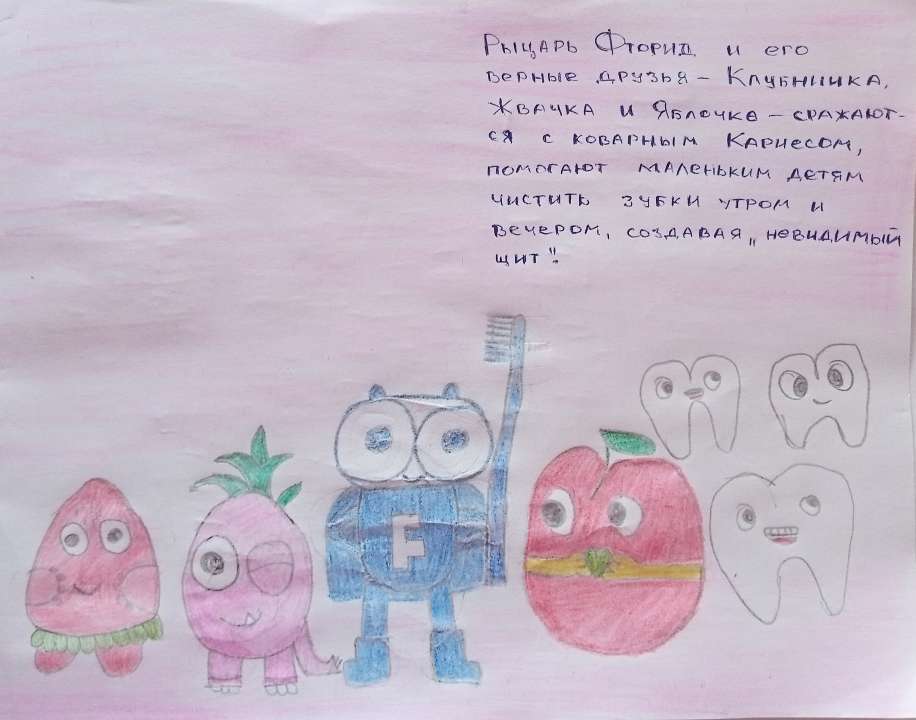 Рыцарь Фторид и его
верные друзья – Клубника,
Жвачка и Яблочко – сражают-
ся с коварным Кариесом,
помогают маленьким детям
чистить зубки утром и
вечером, создавая „невидимый
щит".
F